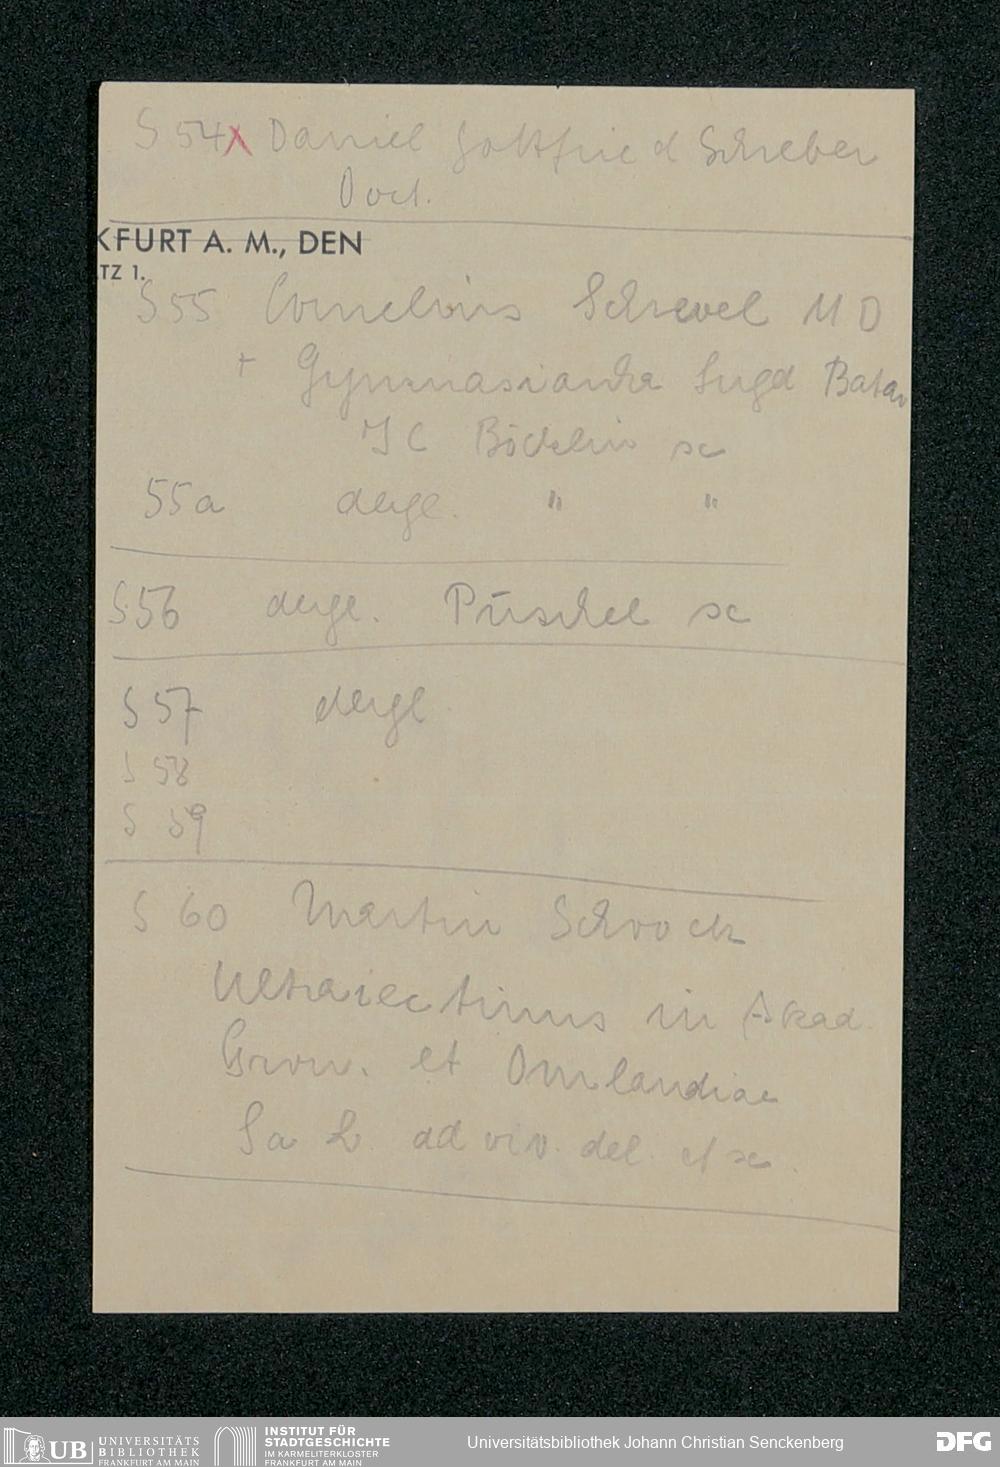 S 54 x Daniel Gottfried Schreber
Doct.
KFURT A. M., DEN
TZ 1.
S 55 Cornelius Schrevel M D
+ Gymnasiarcha Lugd Batav
J C Böcklin sc
55a dergl. " "
S 56 dergl. Püschel sc
S 57 dergl
S 58
S 59
S 60 Martin Schoock
Ultraiectinus in Akad.
Gron. et Omlandiae
ad viv. del. et sc.
UB UNIVERSITÄTS
BIBLIOTHEK
FRANKFURT AM MAIN
INSTITUT FÜR
STADTGESCHICHTE
IM KARMELITERKLOSTER
FRANKFURT AM MAIN
Universitätsbibliothek Johann Christian Senckenberg
DFG